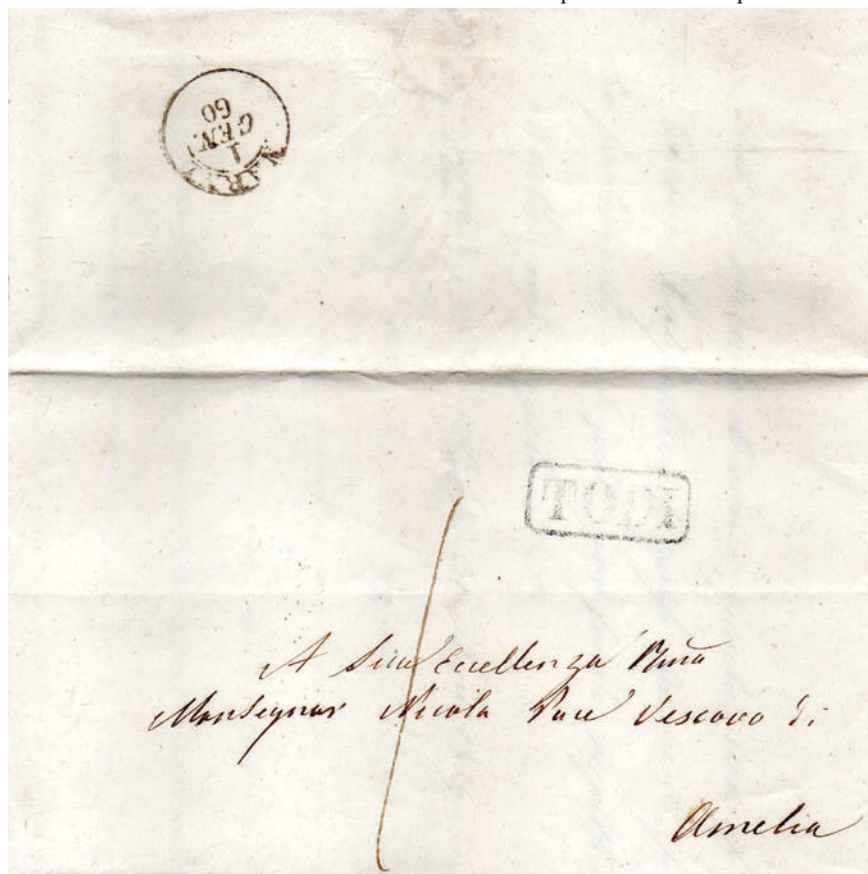 NARNI
1
GEN.
60
TODI
A Sua Eccellenza Rma
Monsignor Nicola Pace Vescovo di
Amelia